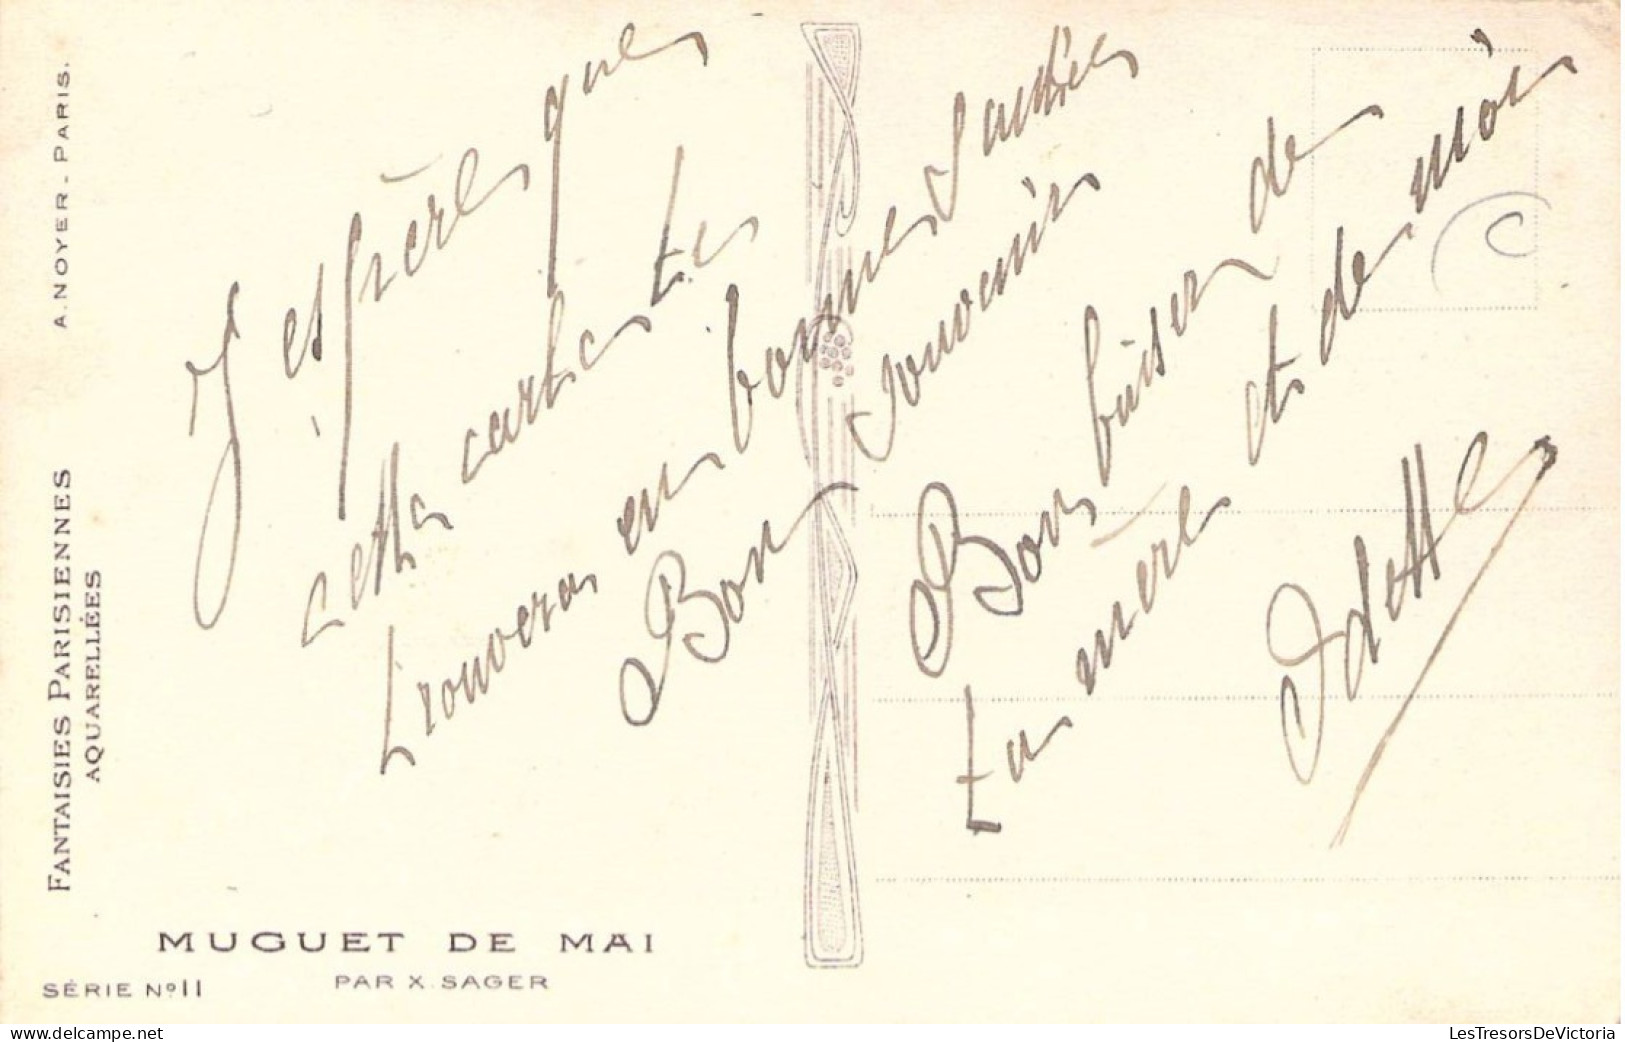 J'espère que
cette carte te
trouveras en bonne santée
Bon souvenir
Bons baiser de
ta mère et de moi
Odette
A. NOYER - PARIS.
FANTAISIES PARISIENNES
AQUARELLÉES
MUGUET DE MAI
PAR X. SAGER
SÉRIE Nº 11
LesTresorsDeVictoria